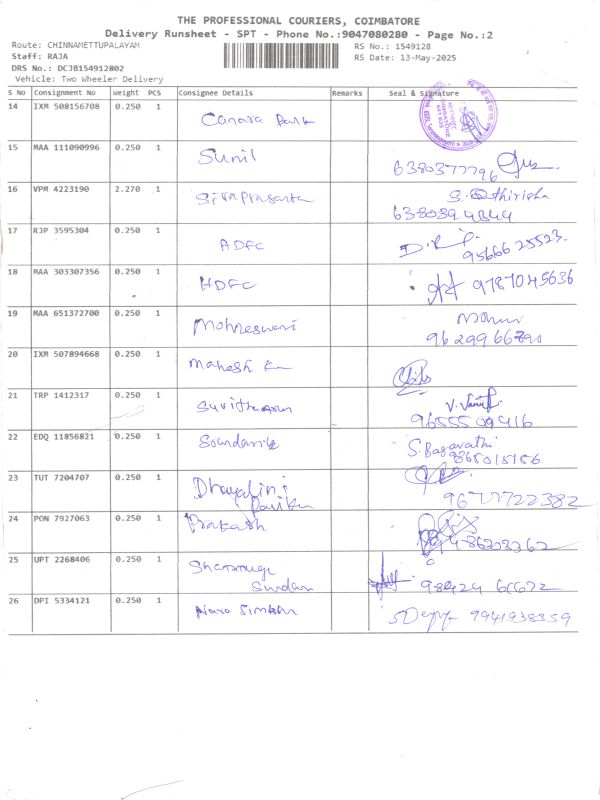 THE PROFESSIONAL COURIERS, COIMBATORE
Delivery Runsheet - SPT - Phone No.:9047080280 - Page No.:2
Route: CHINNAMETTUPALAYAM RS No.: 1549128
Staff: RAJA RS Date: 13-May-2025
DRS No.: DCJB154912802
Vehicle: Two Wheeler Delivery
S No Consignment No Weight PCS Consignee Details Remarks Seal & Signature
14 IXM 508156708 0.250 1 Canara Bank
15 MAA 111090996 0.250 1 Sunil 6380377796
16 VPM 4223190 2.270 1 Sivaprasanta
6380394844
17 RJP 3595304 0.250 1 HDFC
9566625523
18 MAA 303307356 0.250 1 HDFC 9787045636
19 MAA 651372700 0.250 1 Mohneswari
20 IXM 507894668 0.250 1 Mahesh
21 TRP 1412317 0.250 1
9655509416
22 EDQ 11856821 0.250 1 S. Bagavathi
9865015156
23 TUT 7204707 0.250 1 Dhayalini
9677722382
24 PON 7927063 0.250 1 Prakash
25 UPT 2268406 0.250 1 Shanmuga
Sundar
26 DPI 5334121 0.250 1 9941938359